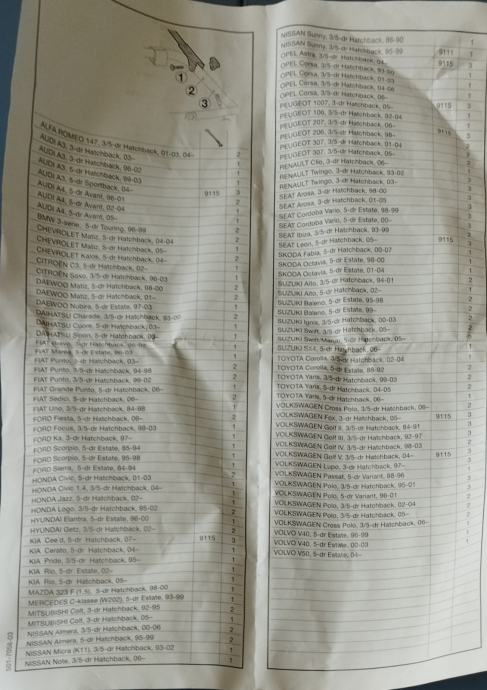 1
2
3
ALFA ROMEO 147, 3/5-dr Hatchback, 01-03, 04- 2
AUDI A3, 3-dr Hatchback, 03-
AUDI A3, 3-dr Hatchback, 96-02
AUDI A3, 5-dr Hatchback, 99-03
AUDI A3, 5-dr Sportback, 04-
AUDI A4, 5-dr Avant, 96-01 9115 3
AUDI A4, 5-dr Avant, 02-04
AUDI A4, 5-dr Avant, 05-
BMW 3-serie, 5-dr Touring, 96-99
CHEVROLET Matiz, 5-dr Hatchback, 04-04
CHEVROLET Matiz, 5-dr Hatchback, 05-
CHEVROLET Kalos, 5-dr Hatchback, 04-
CITROËN C3, 5-dr Hatchback, 02-
CITROËN Saxo, 3/5-dr Hatchback, 96-03
DAEWOO Matiz, 5-dr Hatchback, 98-00
DAEWOO Matiz, 5-dr Hatchback, 01-
DAEWOO Nubira, 5-dr Estate, 97-03
DAIHATSU Charade, 3/5-dr Hatchback, 93-00
DAIHATSU Cuore, 5-dr Hatchback, 03-
DAIHATSU Sirion, 5-dr Hatchback,
FIAT Bravo, 3-dr Hatchback,
FIAT Marea, 5-dr Estate, 96-03
FIAT Punto, 3-dr Hatchback, 03-
FIAT Punto, 3/5-dr Hatchback, 94-98 2
FIAT Punto, 3/5-dr Hatchback, 99-02 2
FIAT Grande Punto, 5-dr Hatchback, 06- 1
FIAT Sedici, 5-dr Hatchback, 06- 2
FIAT Uno, 3/5-dr Hatchback, 84-98 1
FORD Fiesta, 5-dr Hatchback, 06- 2
FORD Focus, 3/5-dr Hatchback, 98-03 2
FORD Ka, 3-dr Hatchback, 97-
FORD Scorpio, 5-dr Estate, 85-94
FORD Scorpio, 5-dr Estate, 95-98
FORD Sierra, 5-dr Estate, 84-94
HONDA Civic, 5-dr Hatchback, 01-03 2
HONDA Civic 1.4, 3/5-dr Hatchback, 04- 1
HONDA Jazz, 5-dr Hatchback, 02-
HONDA Logo, 3/5-dr Hatchback, 95-02
HYUNDAI Elantra, 5-dr Estate, 96-00
HYUNDAI Getz, 3/5-dr Hatchback, 02- 2
KIA Cee'd, 5-dr Hatchback, 07- 9115 3
KIA Cerato, 5-dr Hatchback, 04- 1
KIA Pride, 3/5-dr Hatchback, 95- 1
KIA Rio, 5-dr Estate, 02- 1
KIA Rio, 5-dr Hatchback, 05- 1
MAZDA 323 F (1.5), 3-dr Hatchback, 98-00 1
MERCEDES C-klasse (W202), 5-dr Estate, 93-99 1
MITSUBISHI Colt, 3-dr Hatchback, 92-95 2
MITSUBISHI Colt, 3/5-dr Hatchback, 05- 1
NISSAN Almera, 3/5-dr Hatchback, 00-06 2
NISSAN Almera, 5-dr Hatchback, 95-99 2
NISSAN Micra (K11), 3/5-dr Hatchback, 93-02 1
NISSAN Note, 3/5-dr Hatchback, 06- 1
501-7058-03
NISSAN Sunny, 3/5-dr Hatchback, 86-90 1
NISSAN Sunny, 3/5-dr Hatchback, 95-99 1
OPEL Astra, 3/5-dr Hatchback, 04- 9111 1
OPEL Corsa, 3/5-dr Hatchback, 93-00 9115 3
OPEL Corsa, 3/5-dr Hatchback, 01-03
OPEL Corsa, 3/5-dr Hatchback, 04-06
OPEL Corsa, 3/5-dr Hatchback, 06-
PEUGEOT 1007, 3-dr Hatchback, 05- 9115 3
PEUGEOT 106, 3/5-dr Hatchback, 92-04
PEUGEOT 207, 3/5-dr Hatchback, 06-
PEUGEOT 206, 3/5-dr Hatchback, 98- 9115
PEUGEOT 307, 3/5-dr Hatchback, 01-04
PEUGEOT 307, 3/5-dr Hatchback, 05-
RENAULT Clio, 3-dr Hatchback, 06-
RENAULT Twingo, 3-dr Hatchback, 93-02
RENAULT Twingo, 3-dr Hatchback, 03-
SEAT Arosa, 3-dr Hatchback, 98-00
SEAT Arosa, 3-dr Hatchback, 01-05
SEAT Cordoba Vario, 5-dr Estate, 98-99
SEAT Cordoba Vario, 5-dr Estate, 00-
SEAT Ibiza, 3/5-dr Hatchback, 93-99
SEAT Leon, 5-dr Hatchback, 05- 9115 3
SKODA Fabia, 5-dr Hatchback, 00-07
SKODA Octavia, 5-dr Estate, 98-00
SKODA Octavia, 5-dr Estate, 01-04
SUZUKI Alto, 3/5-dr Hatchback, 94-01
SUZUKI Alto, 5-dr Hatchback, 02-
SUZUKI Baleno, 5-dr Estate, 95-98
SUZUKI Baleno, 5-dr Estate, 99-
SUZUKI Ignis, 3/5-dr Hatchback, 00-03
SUZUKI Swift, 3/5-dr Hatchback, 05-
SUZUKI Swift 5-dr Hatchback, 05-
SUZUKI SX4, 5-dr Hatchback, 06-
TOYOTA Corolla, 3/5-dr Hatchback, 02-04
TOYOTA Corolla, 5-dr Estate, 88-92
TOYOTA Yaris, 3/5-dr Hatchback, 99-03
TOYOTA Yaris, 5-dr Hatchback, 04-05
TOYOTA Yaris, 5-dr Hatchback, 06-
VOLKSWAGEN Cross Polo, 3/5-dr Hatchback, 06- 2
VOLKSWAGEN Fox, 3-dr Hatchback, 05- 9115 3
VOLKSWAGEN Golf II, 3/5-dr Hatchback, 84-91 3
VOLKSWAGEN Golf III, 3/5-dr Hatchback, 92-97 3
VOLKSWAGEN Golf IV, 3/5-dr Hatchback, 98-03 2
VOLKSWAGEN Golf V, 3/5-dr Hatchback, 04- 9115 3
VOLKSWAGEN Lupo, 3-dr Hatchback, 97-
VOLKSWAGEN Passat, 5-dr Variant, 88-96
VOLKSWAGEN Polo, 3/5-dr Hatchback, 95-01
VOLKSWAGEN Polo, 5-dr Variant, 96-01
VOLKSWAGEN Polo, 3/5-dr Hatchback, 02-04
VOLKSWAGEN Polo, 3/5-dr Hatchback, 05-
VOLKSWAGEN Cross Polo, 3/5-dr Hatchback, 06-
VOLVO V40, 5-dr Estate, 96-99
VOLVO V40, 5-dr Estate, 00-03
VOLVO V50, 5-dr Estate, 04-